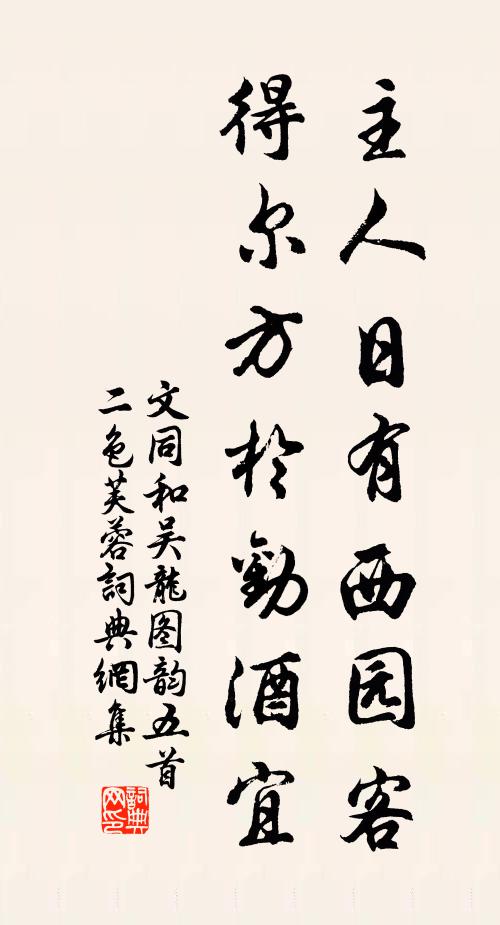 主人日有西园客
得尔方於勸酒宜
文同和吴龍图韵五首
二色芙蓉詞典網集
詞典
网印